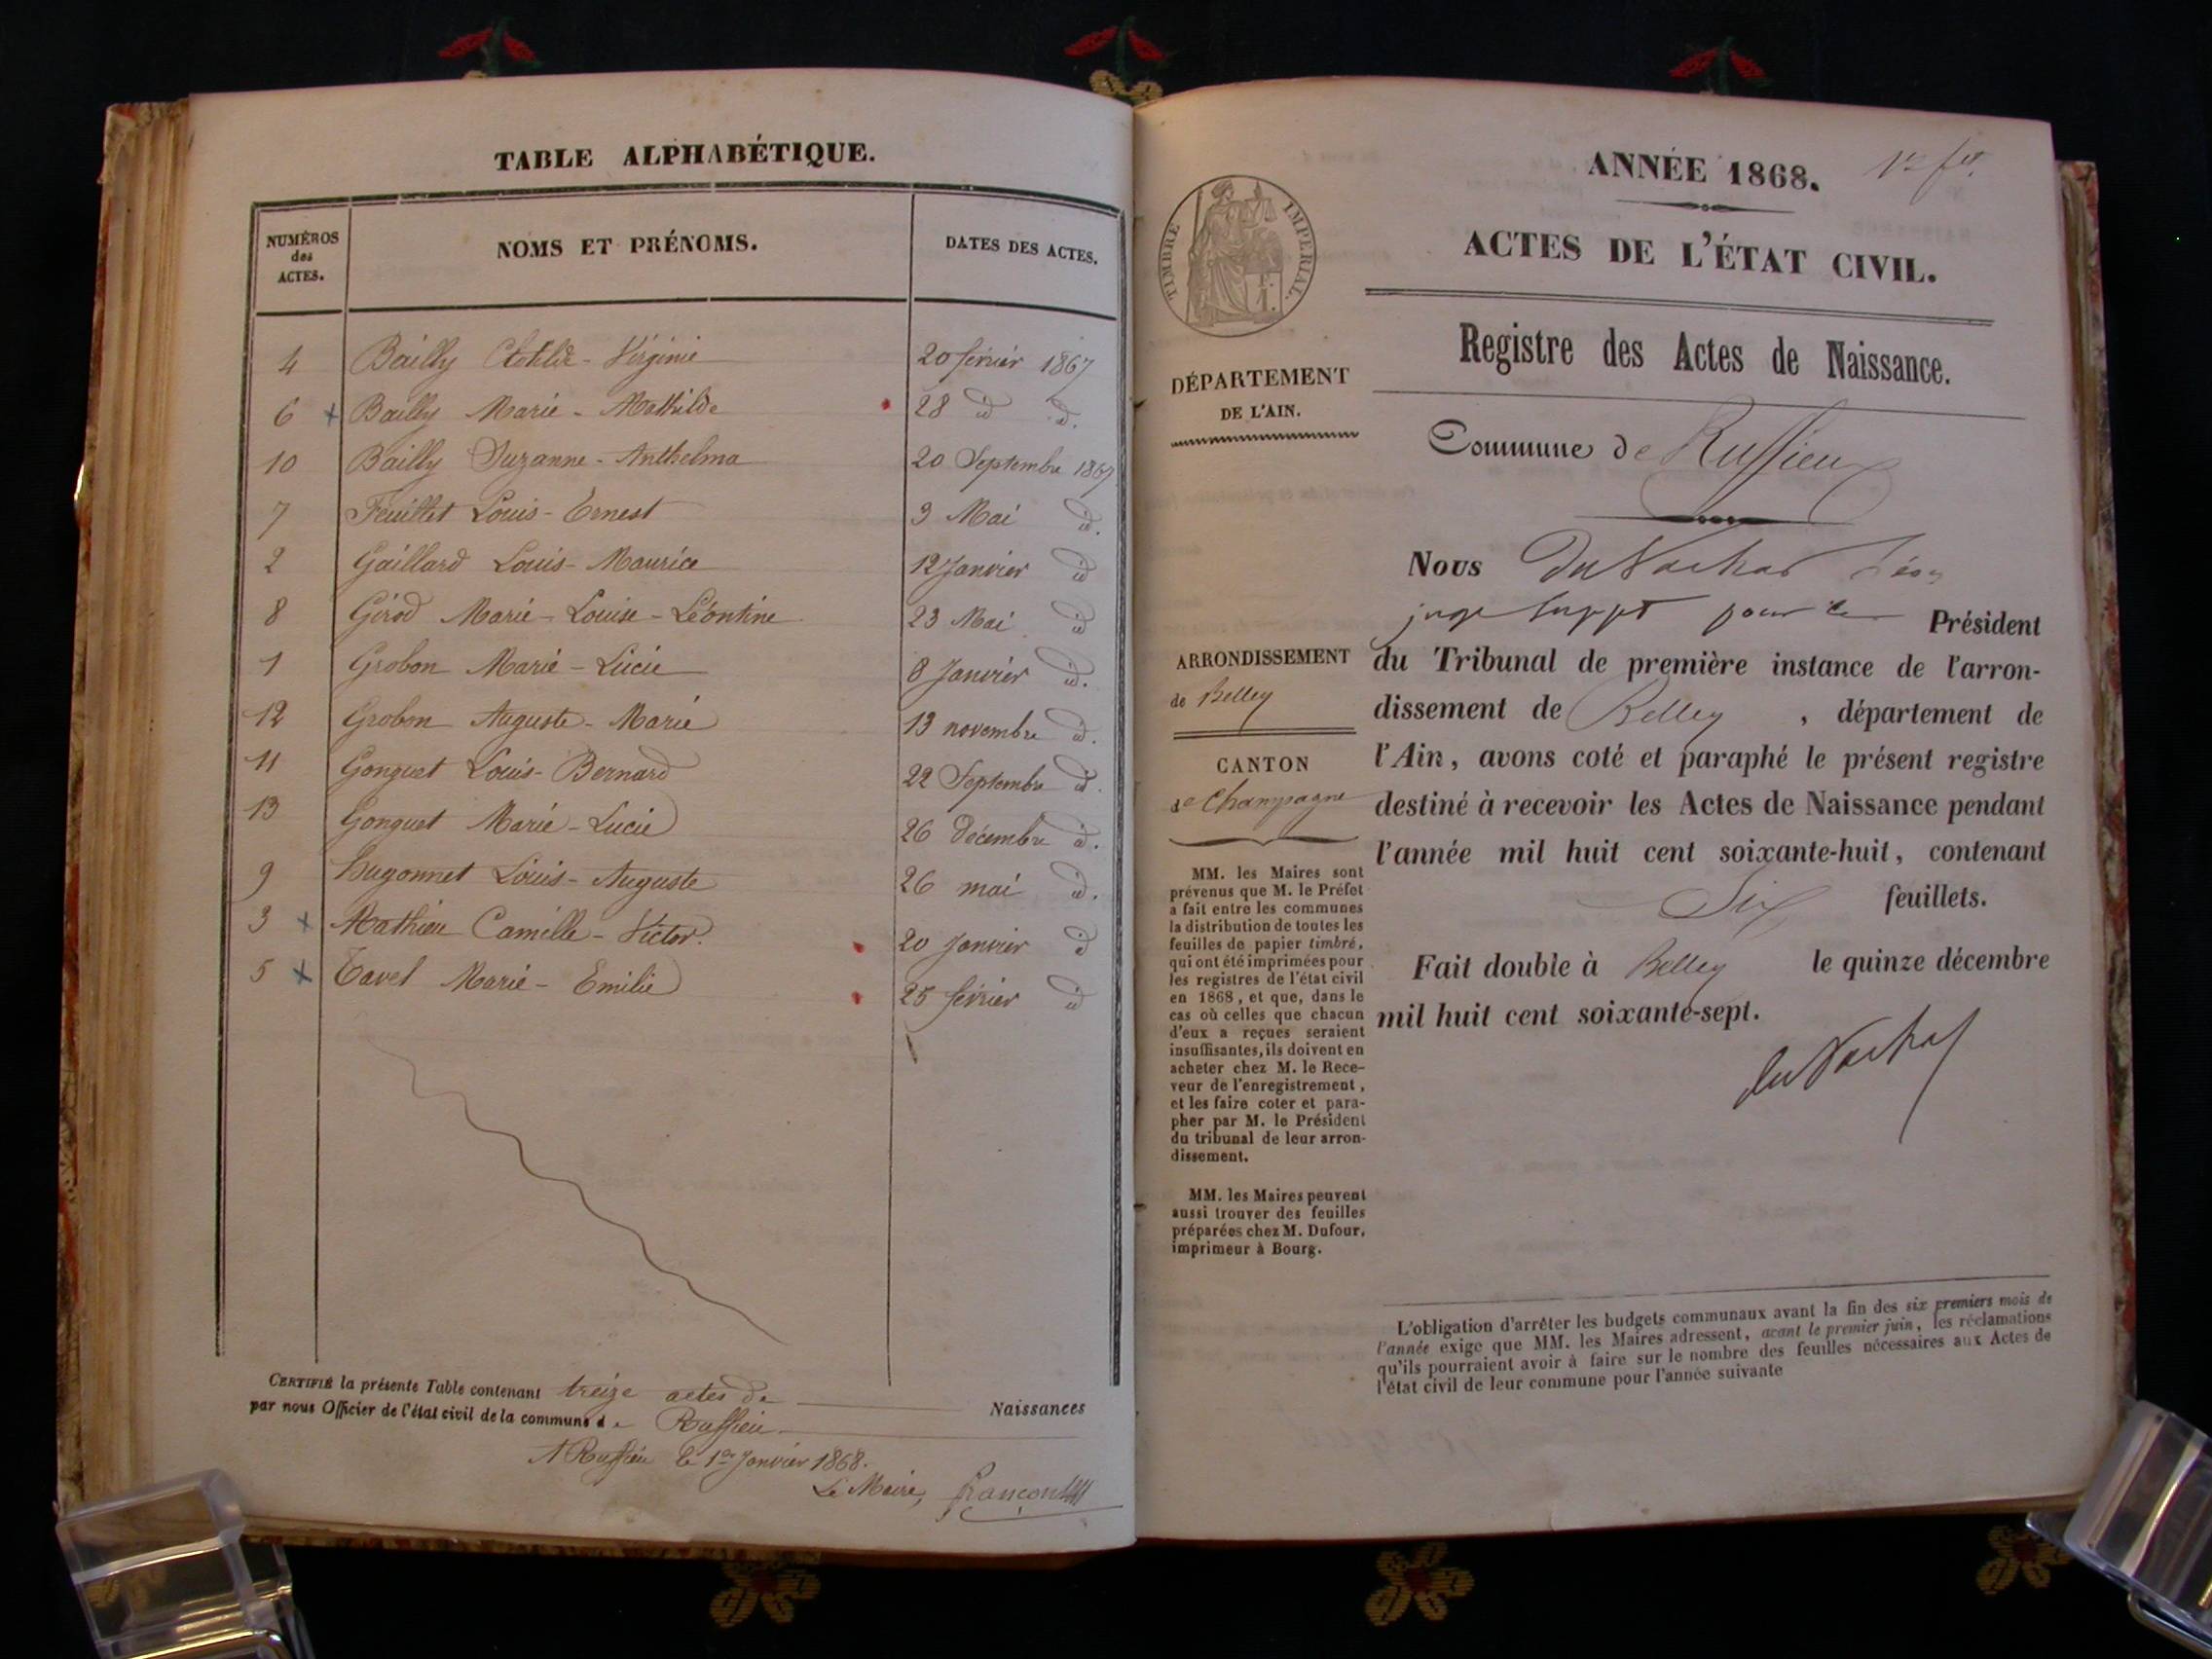 TABLE ALPHABÉTIQUE.
NUMÉROS des ACTES. NOMS ET PRÉNOMS. DATES DES ACTES.
4 Bailly Clotilde - Virginie 20 février 1867
6 Bailly Marie - Mathilde 28 id id.
10 Bailly Suzanne - Anthelma 20 Septembre 1867
7 Feuillet Louis - Ernest 3 Mai id.
2 Gaillard Louis - Maurice 12 Janvier id
8 Girod Marie - Louise - Léontine 23 Mai id
1 Grobon Marie - Lucie 8 Janvier id.
12 Grobon Auguste - Marie 13 novembre id.
11 Gonguet Louis - Bernard 22 Septembre id.
13 Gonguet Marie - Lucie 26 Décembre id.
9 hugonnet Louis - Auguste 26 mai id.
3 Mathieu Camille - Victor. 20 Janvier id
5 Tavel Marie - Emilie 25 février id
CERTIFIÉ la présente Table contenant treize actes de Naissances
par nous Officier de l'état civil de la commune de Ruffieu
A Ruffieu le 1er Janvier 1868.
Le Maire,
ANNÉE 1868.
ACTES DE L'ÉTAT CIVIL.
TIMBRE IMPERIAL.
Registre des Actes de Naissance.
DÉPARTEMENT
DE L'AIN.
Commune de Ruffieu
Nous Du Nachas Léon
juge suppt pour le Président
ARRONDISSEMENT
de Belley
du Tribunal de première instance de l'arron-
dissement de Belley, département de
l'Ain, avons coté et paraphé le présent registre
destiné à recevoir les Actes de Naissance pendant
l'année mil huit cent soixante-huit, contenant
Six feuillets.
Fait double à Belley le quinze décembre
mil huit cent soixante-sept.
CANTON
de Champagne
MM. les Maires sont
prévenus que M. le Préfet
a fait entre les communes
la distribution de toutes les
feuilles de papier timbré,
qui ont été imprimées pour
les registres de l'état civil
en 1868, et que, dans le
cas où celles que chacun
d'eux a reçues seraient
insuffisantes, ils doivent en
acheter chez M. le Rece-
veur de l'enregistrement,
et les faire coter et para-
pher par M. le Président
du tribunal de leur arron-
dissement.
MM. les Maires peuvent
aussi trouver des feuilles
préparées chez M. Dufour,
imprimeur à Bourg.
L'obligation d'arrêter les budgets communaux avant la fin des six premiers mois de
l'année exige que MM. les Maires adressent, avant le premier juin, les réclamations
qu'ils pourraient avoir à faire sur le nombre des feuilles nécessaires aux Actes de
l'état civil de leur commune pour l'année suivante